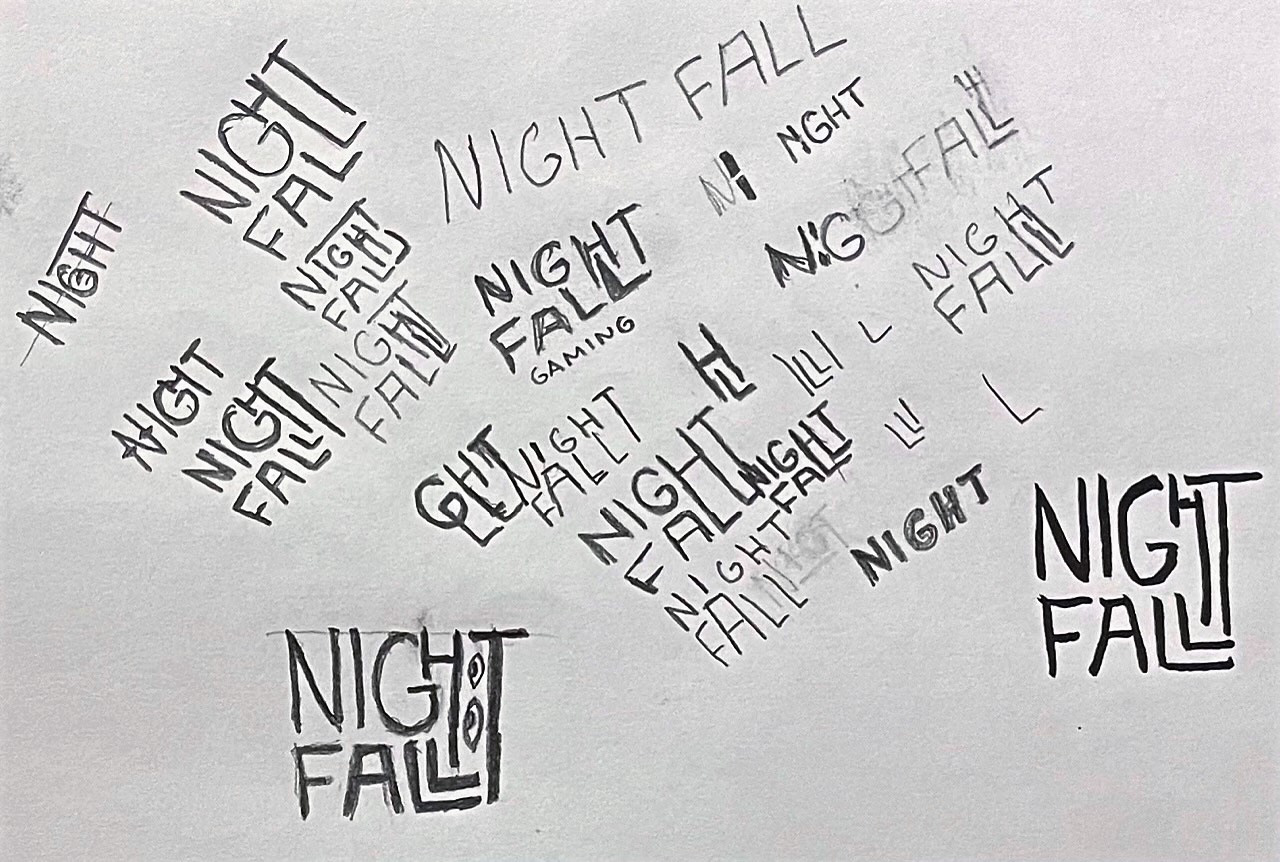 NIGHT FALL
NIGHT
FALL
NI
NGHT
NIG
FALL
NIGHT
NIGHT
FALL
NIGHT
FALL
GAMING
NIG
FALL
NIGHT
FALL
NIGHT
NIGHT
FALL
H
L
L
L
GHT
NIGHT
FALL
NIGHT
FALL
NIGHT
FALL
NIGHT
NIGHT
FALL
NIGHT
FALL
NIGHT
FALL